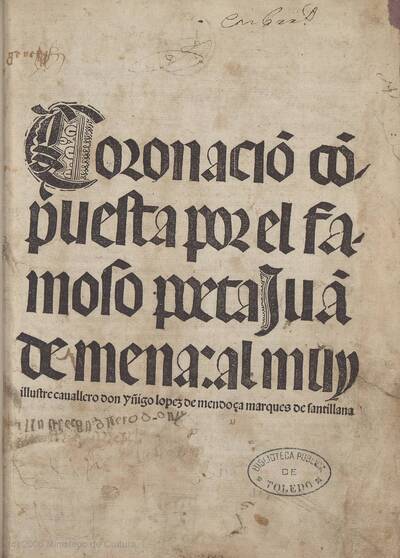 Coronaciō cō-
puesta por el fa-
moso poeta Juā
de mena: al muy
illustre cavallero don yñigo lopez de mendoça marques de santillana
BIBLIOTECA PÚBLICA
DE
TOLEDO
© 2006 Ministerio de Cultura